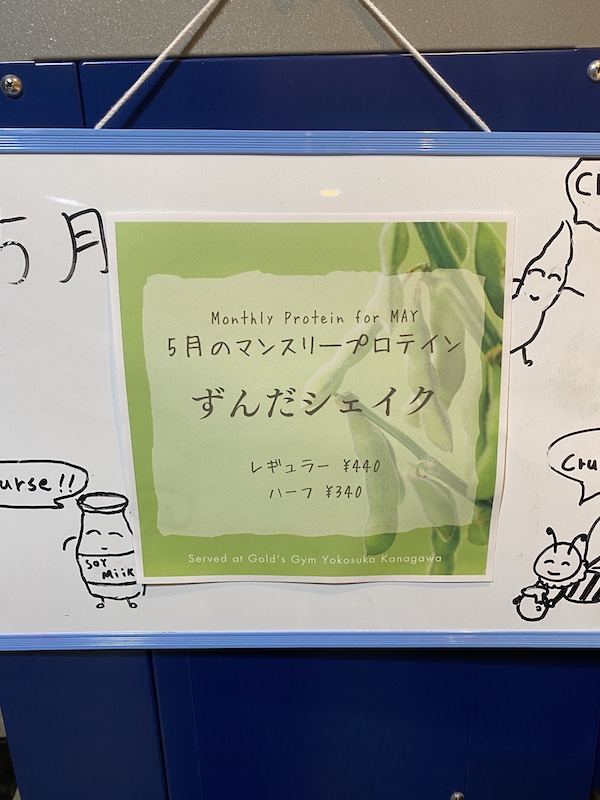 5月
Monthly Protein for MAY
5月のマンスリープロテイン
ずんだシェイク
レギュラー ¥440
ハーフ ¥340
Served at Gold's Gym Yokosuka Kanagawa
urse!!
SOY
Milk
Cru